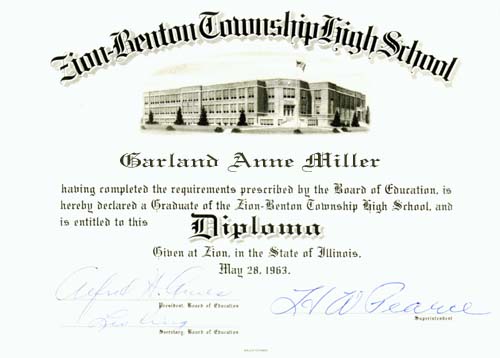 Zion-Benton Township High School
Garland Anne Miller
having completed the requirements prescribed by the Board of Education, is
hereby declared a Graduate of the Zion-Benton Township High School, and
is entitled to this Diploma
Given at Zion, in the State of Illinois,
May 28, 1963.
President, Board of Education
H W Pearce
Superintendent
Secretary, Board of Education